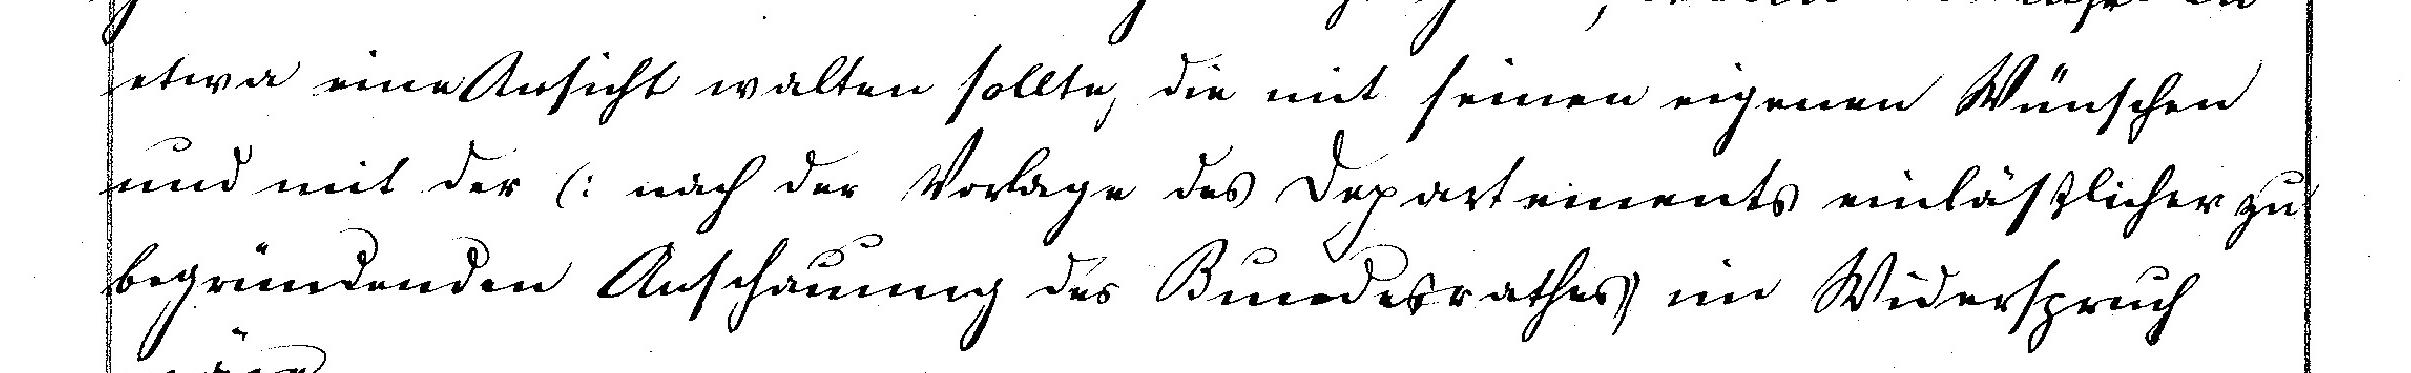 etwa eine Ansicht walten sollte, die mit seinen eigenen Wünschen
und mit der (: nach der Vorlage des Departements einläßlicher zu
begründenden Anschauung des Bundesrathes) im Widerspruch
wäre